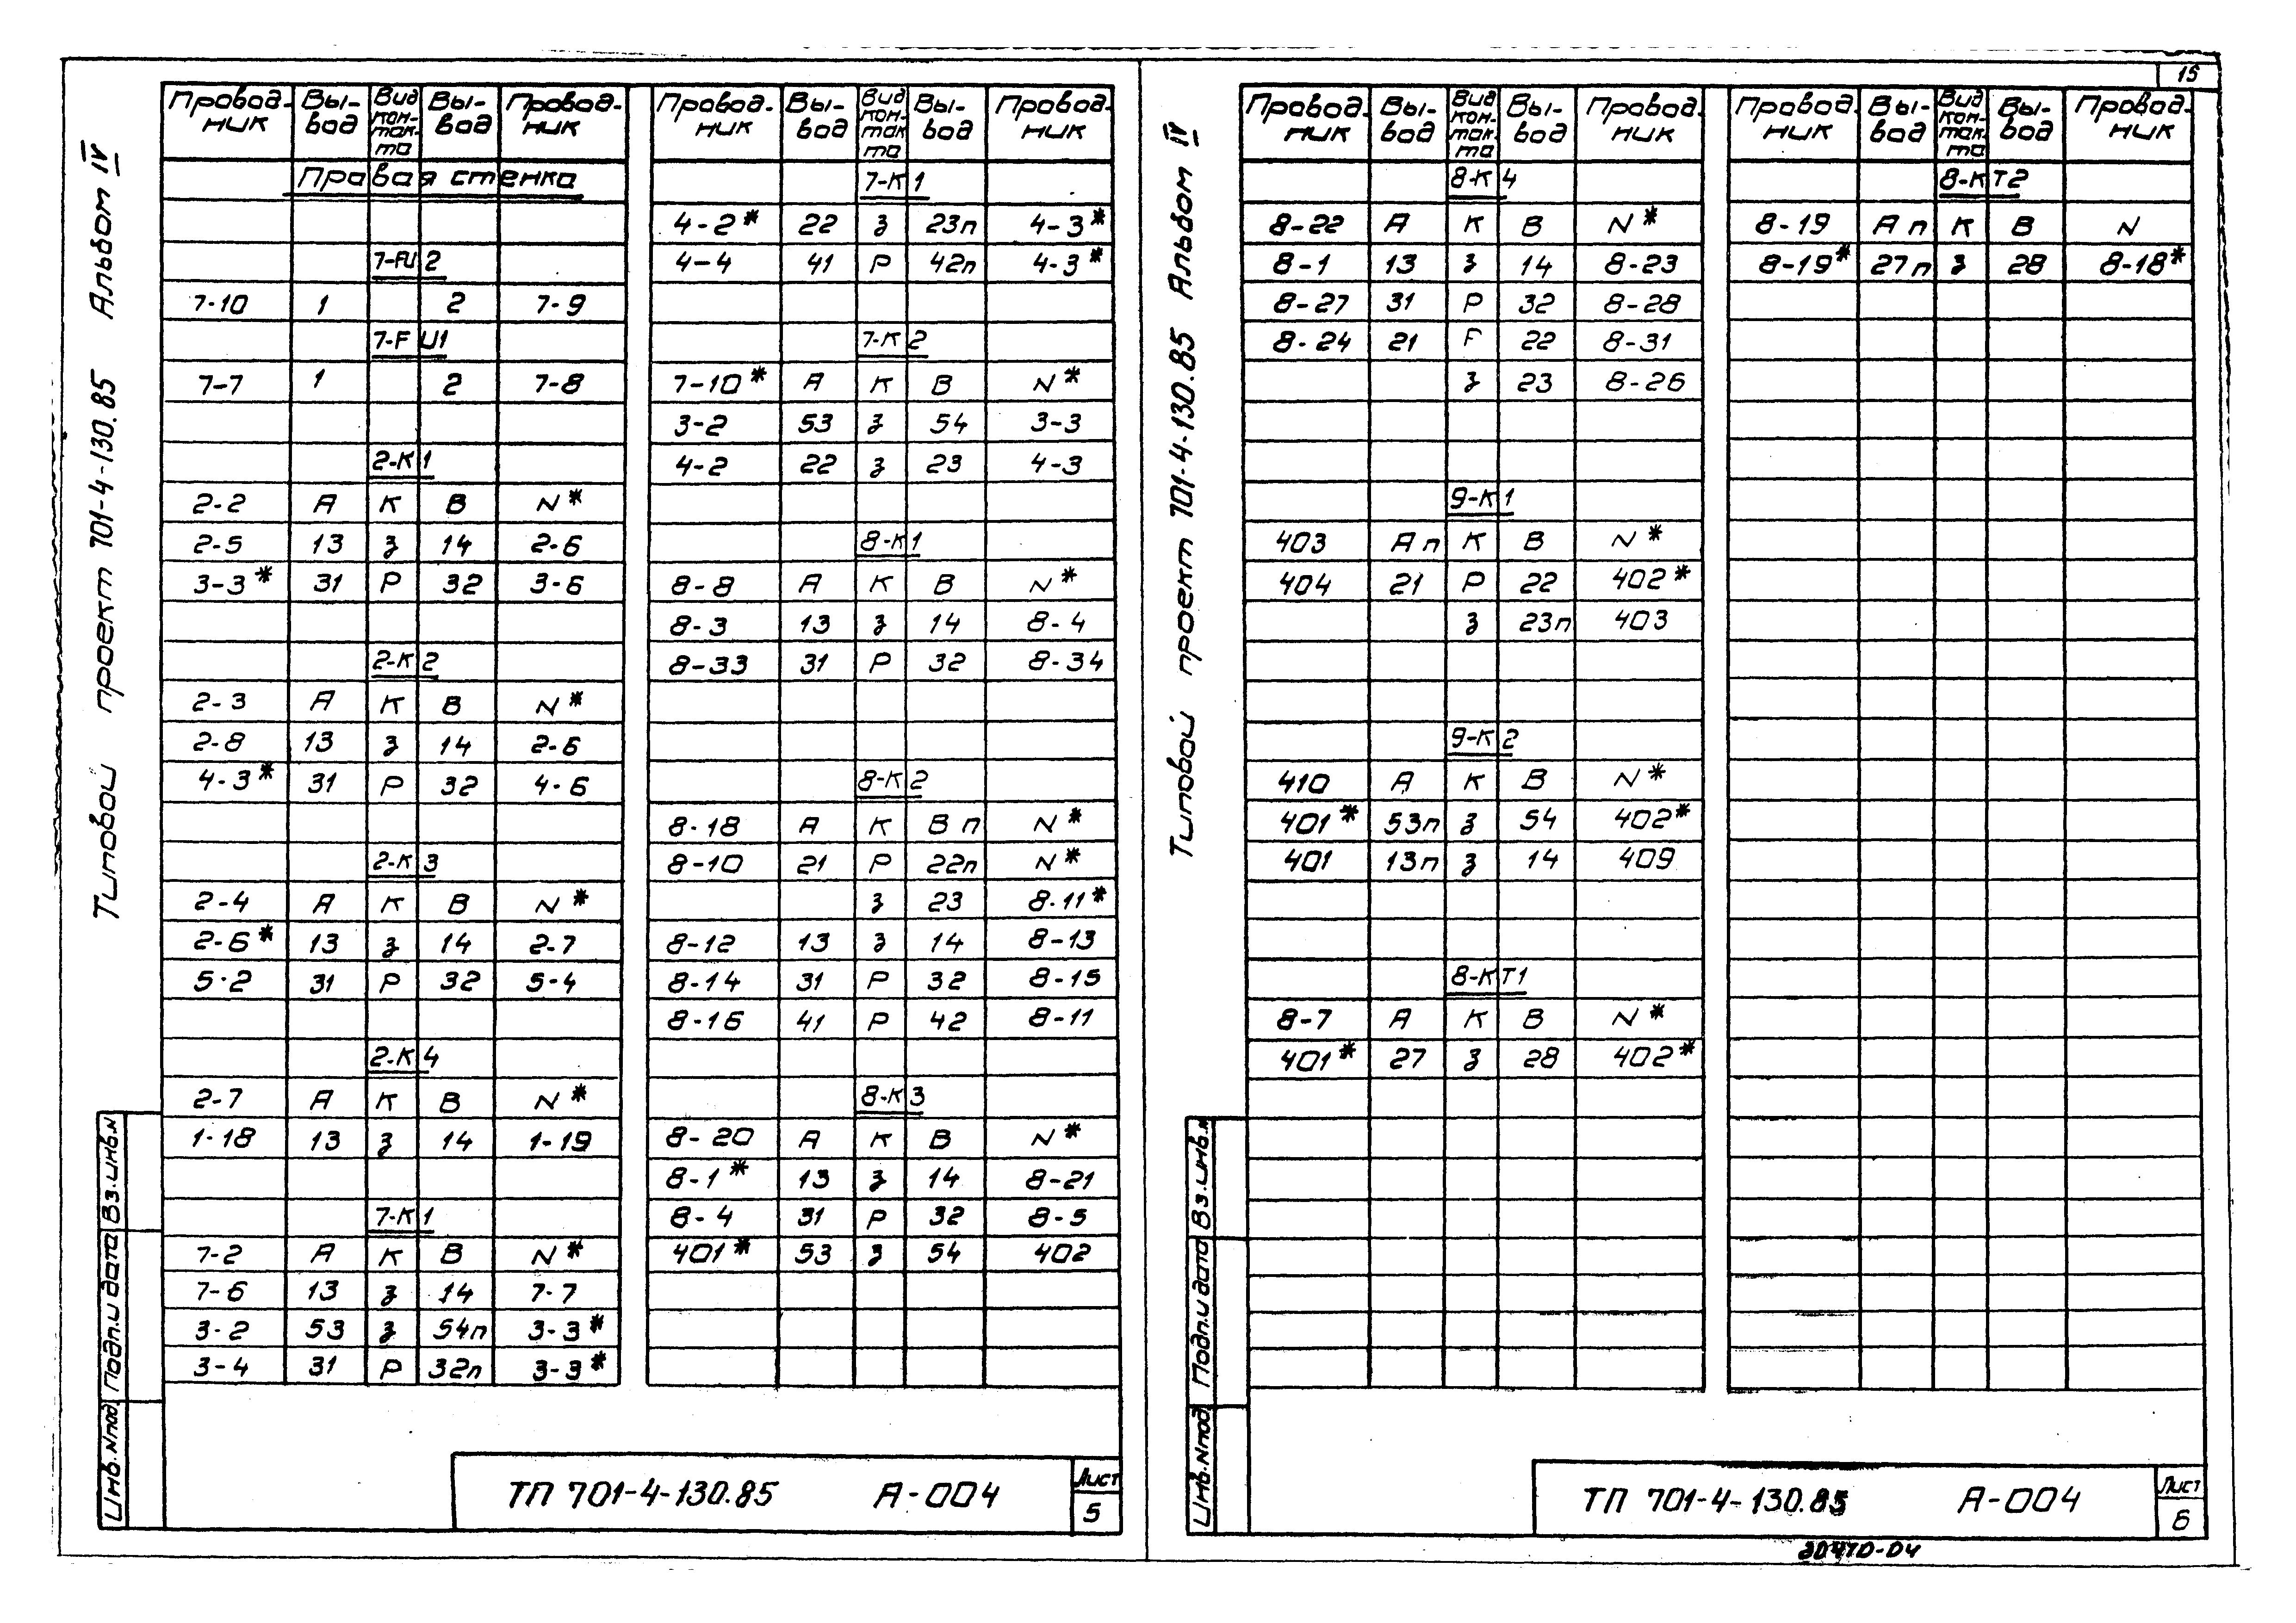 15
Типовой проект 701-4-130.85 Альбом IV
Провод-ник Вы-вод Вид кон-так-та Вы-вод Провод-ник
Правая стенка
7-FU2
7-10 1 2 7-9
7-FU1
7-7 1 2 7-8
2-К1
2-2 А К В N*
2-5 13 З 14 2-6
3-3* 31 Р 32 3-6
2-К2
2-3 А К В N*
2-8 13 З 14 2-6
4-3* 31 Р 32 4-6
2-К3
2-4 А К В N*
2-6* 13 З 14 2-7
5-2 31 Р 32 5-4
2-К4
2-7 А К В N*
1-18 13 З 14 1-19
7-К1
7-2 А К В N*
7-6 13 З 14 7-7
3-2 53 З 54п 3-3*
3-4 31 Р 32п 3-3*
Провод-ник Вы-вод Вид кон-так-та Вы-вод Провод-ник
7-К1
4-2* 22 З 23п 4-3*
4-4 41 Р 42п 4-3*
7-К2
7-10* А К В N*
3-2 53 З 54 3-3
4-2 22 З 23 4-3
8-К1
8-8 А К В N*
8-3 13 З 14 8-4
8-33 31 Р 32 8-34
8-К2
8-18 А К Вп N*
8-10 21 Р 22п N*
З 23 8-11*
8-12 13 З 14 8-13
8-14 31 Р 32 8-15
8-16 41 Р 42 8-11
8-К3
8-20 А К В N*
8-1* 13 З 14 8-21
8-4 31 Р 32 8-5
401* 53 З 54 402
Инв.Nпод Подп.и дата Вз.инв.N
ТП 701-4-130.85 А-004
Лист
5
Типовой проект 701-4-130.85 Альбом IV
Провод-ник Вы-вод Вид кон-так-та Вы-вод Провод-ник
8-К4
8-22 А К В N*
8-1 13 З 14 8-23
8-27 31 Р 32 8-28
8-24 21 F 22 8-31
З 23 8-26
9-К1
403 Ап К В N*
404 21 Р 22 402*
З 23п 403
9-К2
410 А К В N*
401* 53п З 54 402*
401 13п З 14 409
8-КТ1
8-7 А К В N*
401* 27 З 28 402*
Провод-ник Вы-вод Вид кон-так-та Вы-вод Провод-ник
8-КТ2
8-19 Ап К В N
8-19* 27п З 28 8-18*
Инв.Nпод Подп.и дата Вз.инв.N
ТП 701-4-130.85 А-004
Лист
6
20470-04